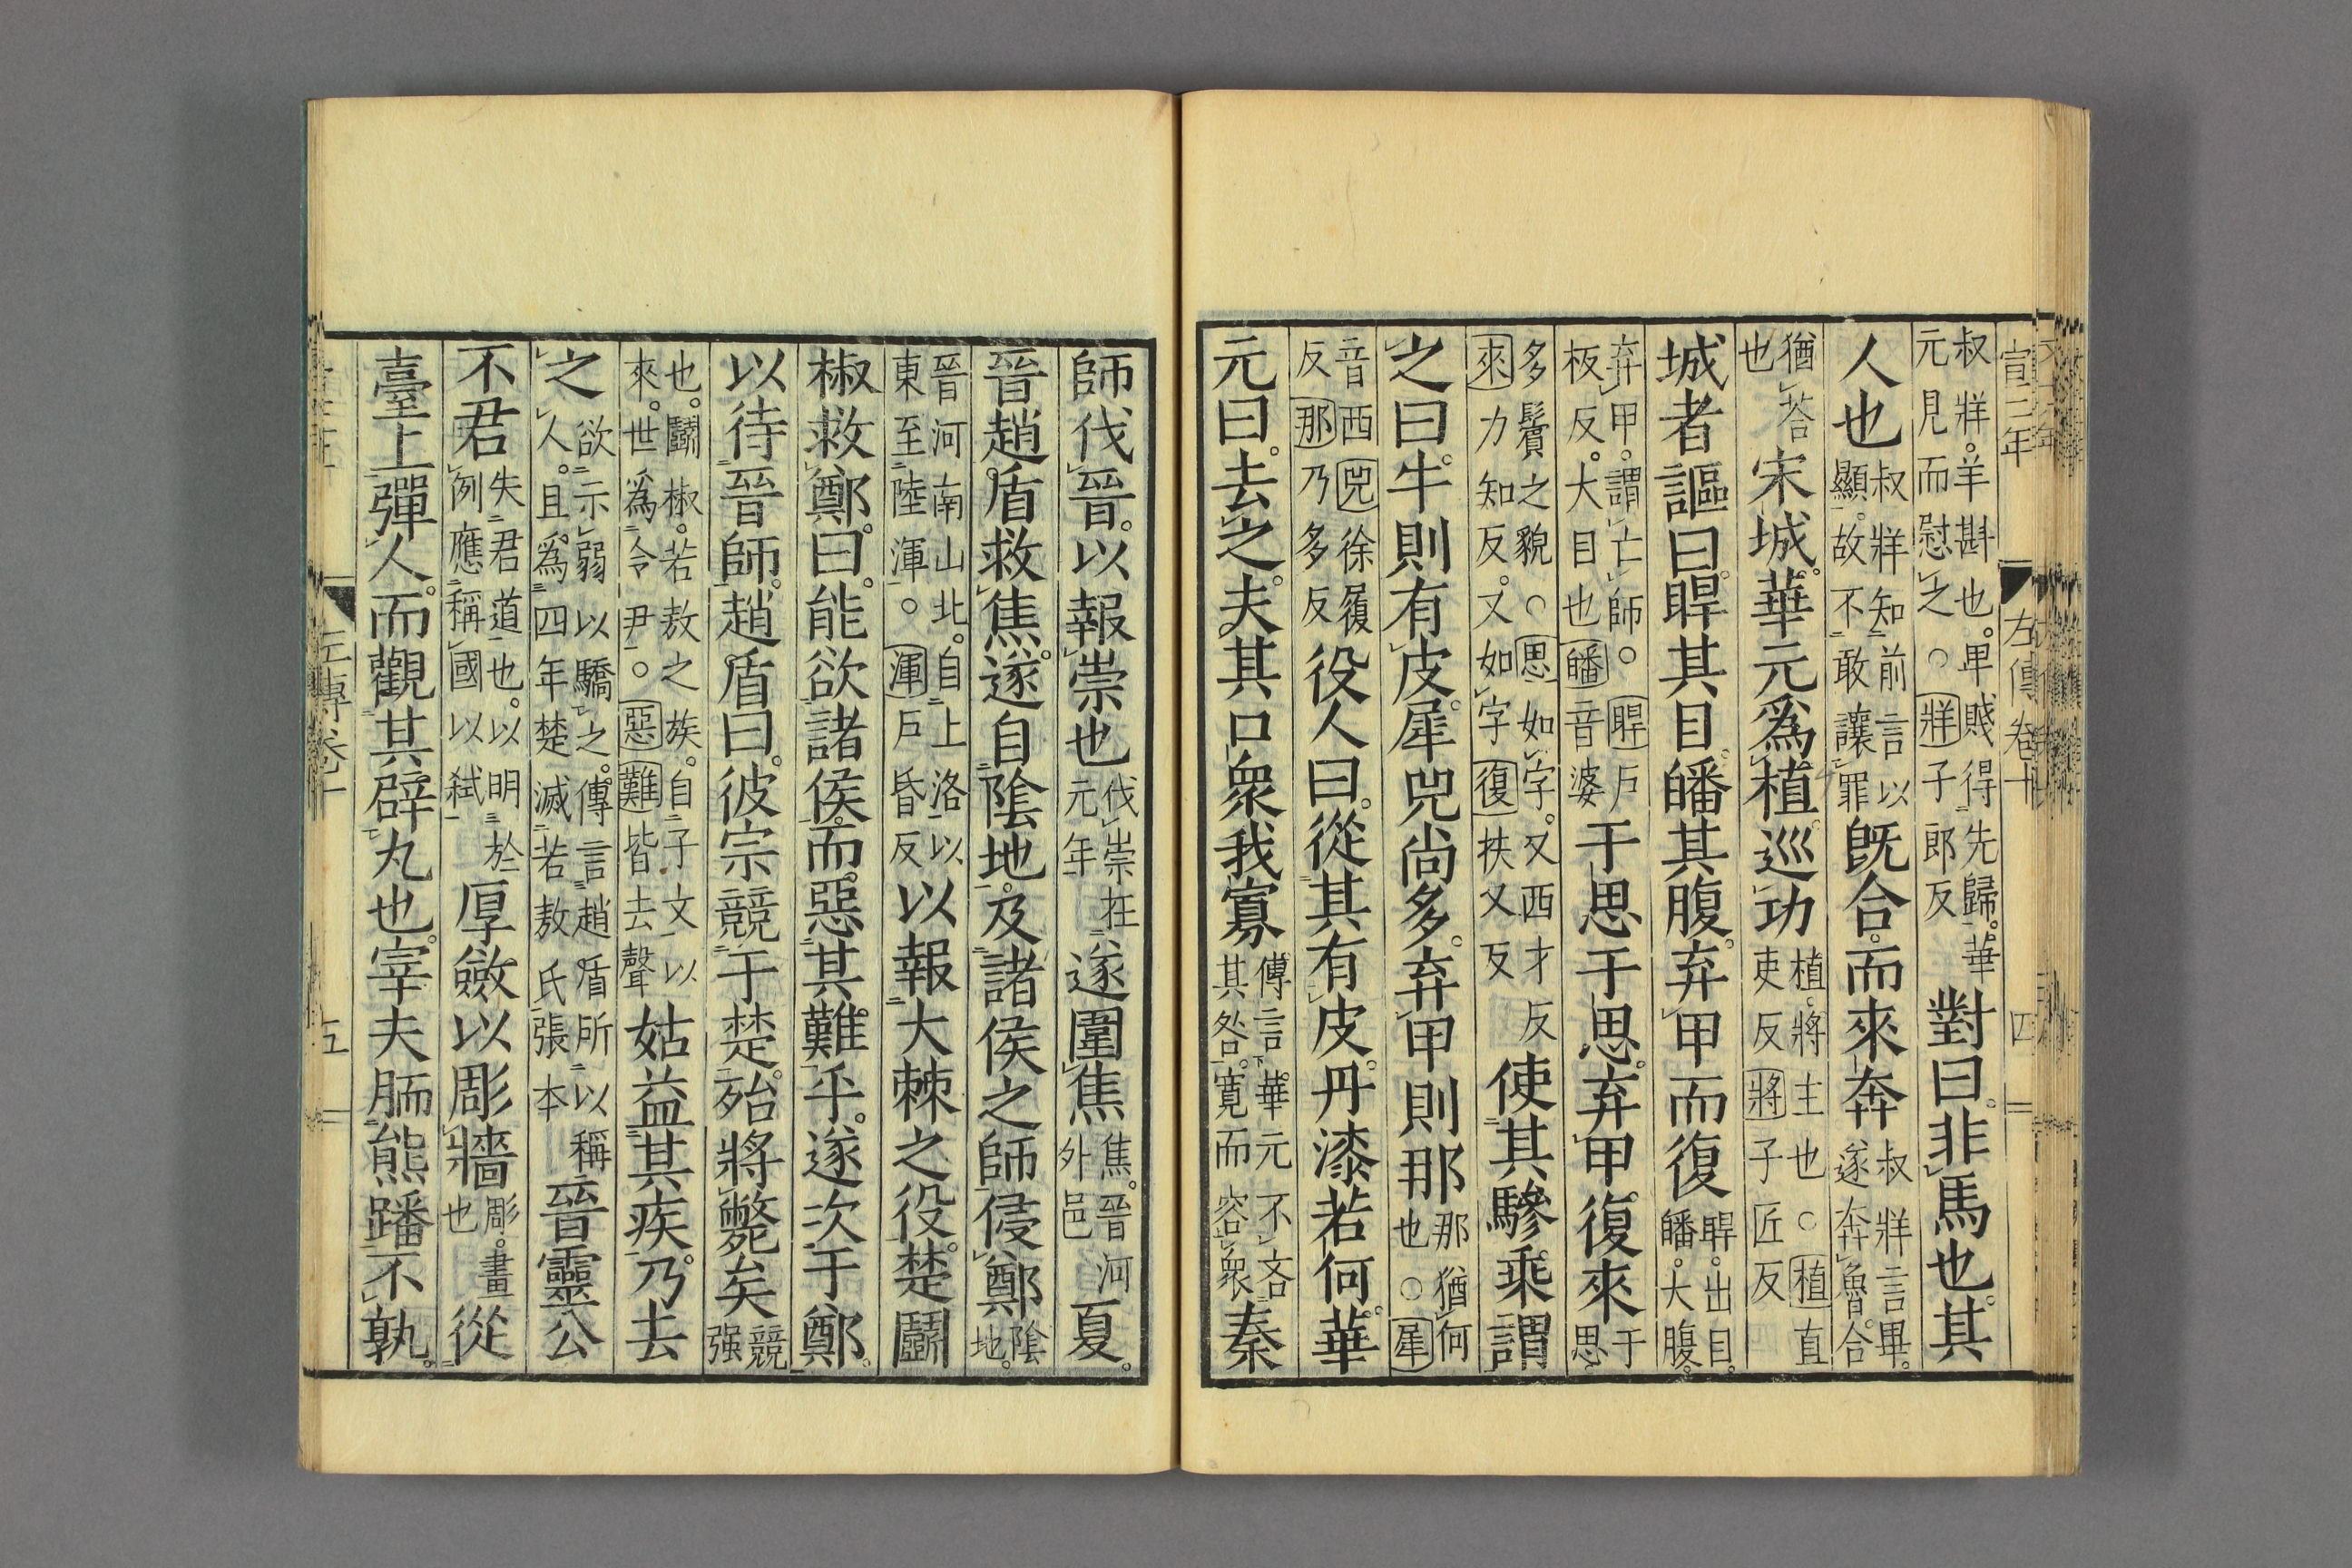 宣二年　左傳卷十　四
叔牂。羊斟也。卑賤得先歸。華元見而慰之。○牂子郎反對曰。非馬也。其
人也叔牂知前言以顯。故不敢讓罪既合。而來奔叔牂言畢。遂奔魯。合
猶荅也宋城。華元爲植。巡功植。將主也○植直吏反將子匠反
城者謳曰。睅其目。皤其腹。弃甲而復睅。出目。皤。大腹。
弃甲。謂亡師。○睅戶板反。大目也皤音婆于思于思。弃甲復來于思
多鬢之貌○思如字。又西才反來力知反。又如字復扶又反使其驂乘謂
之曰。牛則有皮。犀兕尚多。弃甲則那那猶何也○犀
音西兕徐履反那乃多反役人曰。從其有皮。丹漆若何。華
元曰。去之。夫其口衆我寡傳言華元不吝其咎。寬而容衆秦
師伐晉。以報崇也伐崇在元年遂圍焦焦。晉河外邑夏。
晉趙盾救焦。遂自陰地。及諸侯之師侵鄭陰地。
晉河南山北。自上洛以東至陸渾。○渾戶昏反以報大棘之役。楚鬭
椒救鄭。曰。能欲諸侯。而惡其難乎。遂次于鄭。
以待晉師。趙盾曰。彼宗競于楚。殆將斃矣競强
也。鬭椒。若敖之族。自子文以來。世爲令尹○惡難皆去聲姑益其疾。乃去
之欲示弱以驕之。傳言趙盾所以稱人。且爲四年楚滅若敖氏張本晉靈公
不君失君道也。以明於例應稱國以弒厚斂以彫牆彫。畫也從
臺上彈人。而觀其辟丸也。宰夫胹熊蹯不孰。
左傳卷十　五